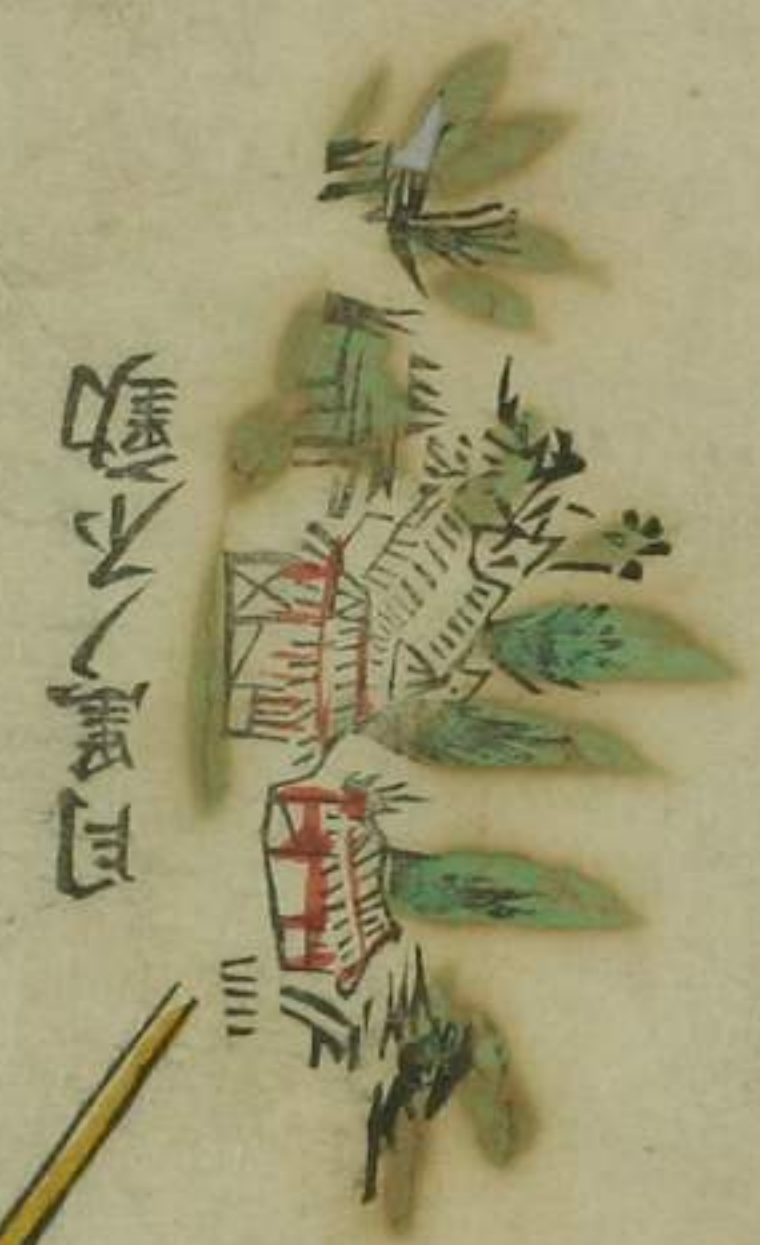 目黒ノ不動